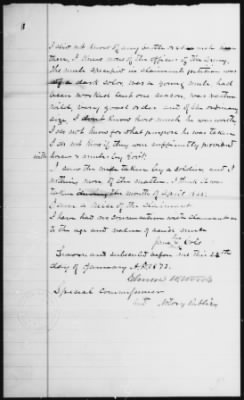 I did not know of any cattle or
then, I knew none of the officers of the Army.
The mule charged in claimants petition was
a dark color, was a young mule, had
been worked but one season, was rather
wild, very good order and of the ordinary
size, I don't know how much he was worth
I do not know for what purpose he was taken
I do not know if they were sufficiently provided
with horses & mules by Govt.
I saw the mule taken by a soldier, and I
nothing more of the matter. I think it was
taken the month of April 186
I am a niece of the claimant
I have had no conversation with claimant as
to the age and nature of said mule
Jane Cole
Sworn and subscribed before me this 24th
day of January A.D. 1873.
Woods
Special Commissioner
and Notary Public